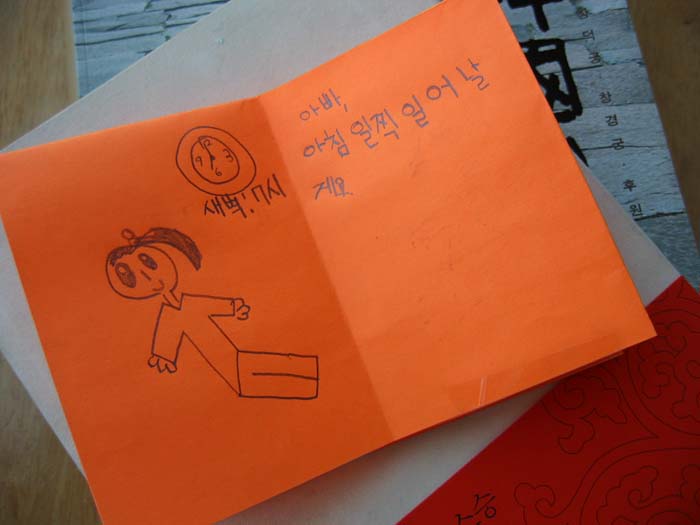 아빠,
아침 일찍 일어날
게요
12
9 3
6
새벽:7시
창덕궁·창경궁·후원